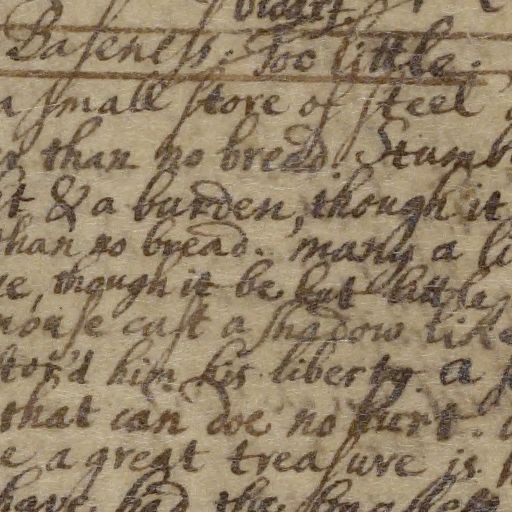 Baſeneſs. Too little.
a ſmall ſtore of ſteel
than no bread. Stumb
& a burden, though it
than no bread. many a li
ve, though it be but little
mouſe caſt a ſhadow like
ſtor'd him his liberty. a
that can doe no hurt.
e a great treaſure is h
have had the